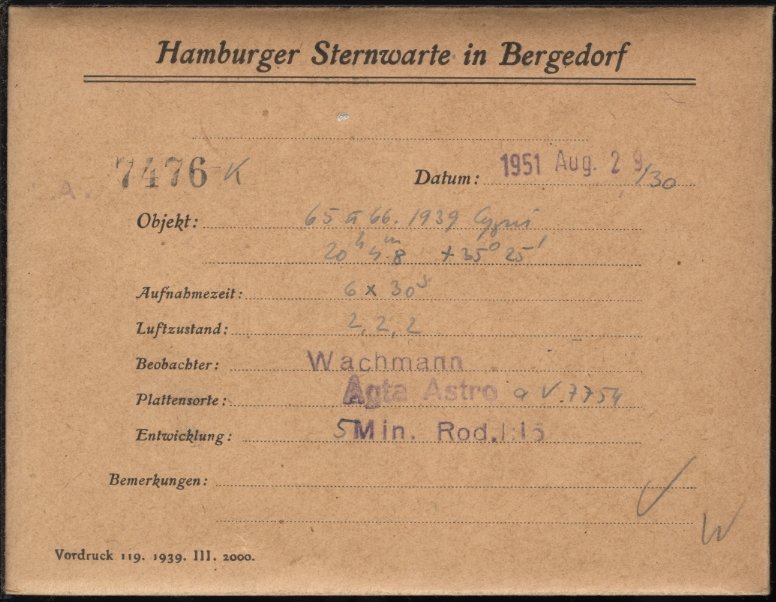 Hamburger Sternwarte in Bergedorf
A. 7476 K Datum: 1951 Aug. 29/30
Objekt: 65 u 66. 1939 Cygni
20ʰ 4ᵐ.8 +35° 25'
Aufnahmezeit: 6 x 30ˢ
Luftzustand: 2, 2, 2
Beobachter: Wachmann
Plattensorte: Agfa Astro a V. 7754
Entwicklung: 5 Min. Rod. 1:15
Bemerkungen:
W
Vordruck 119. 1939. III. 2000.